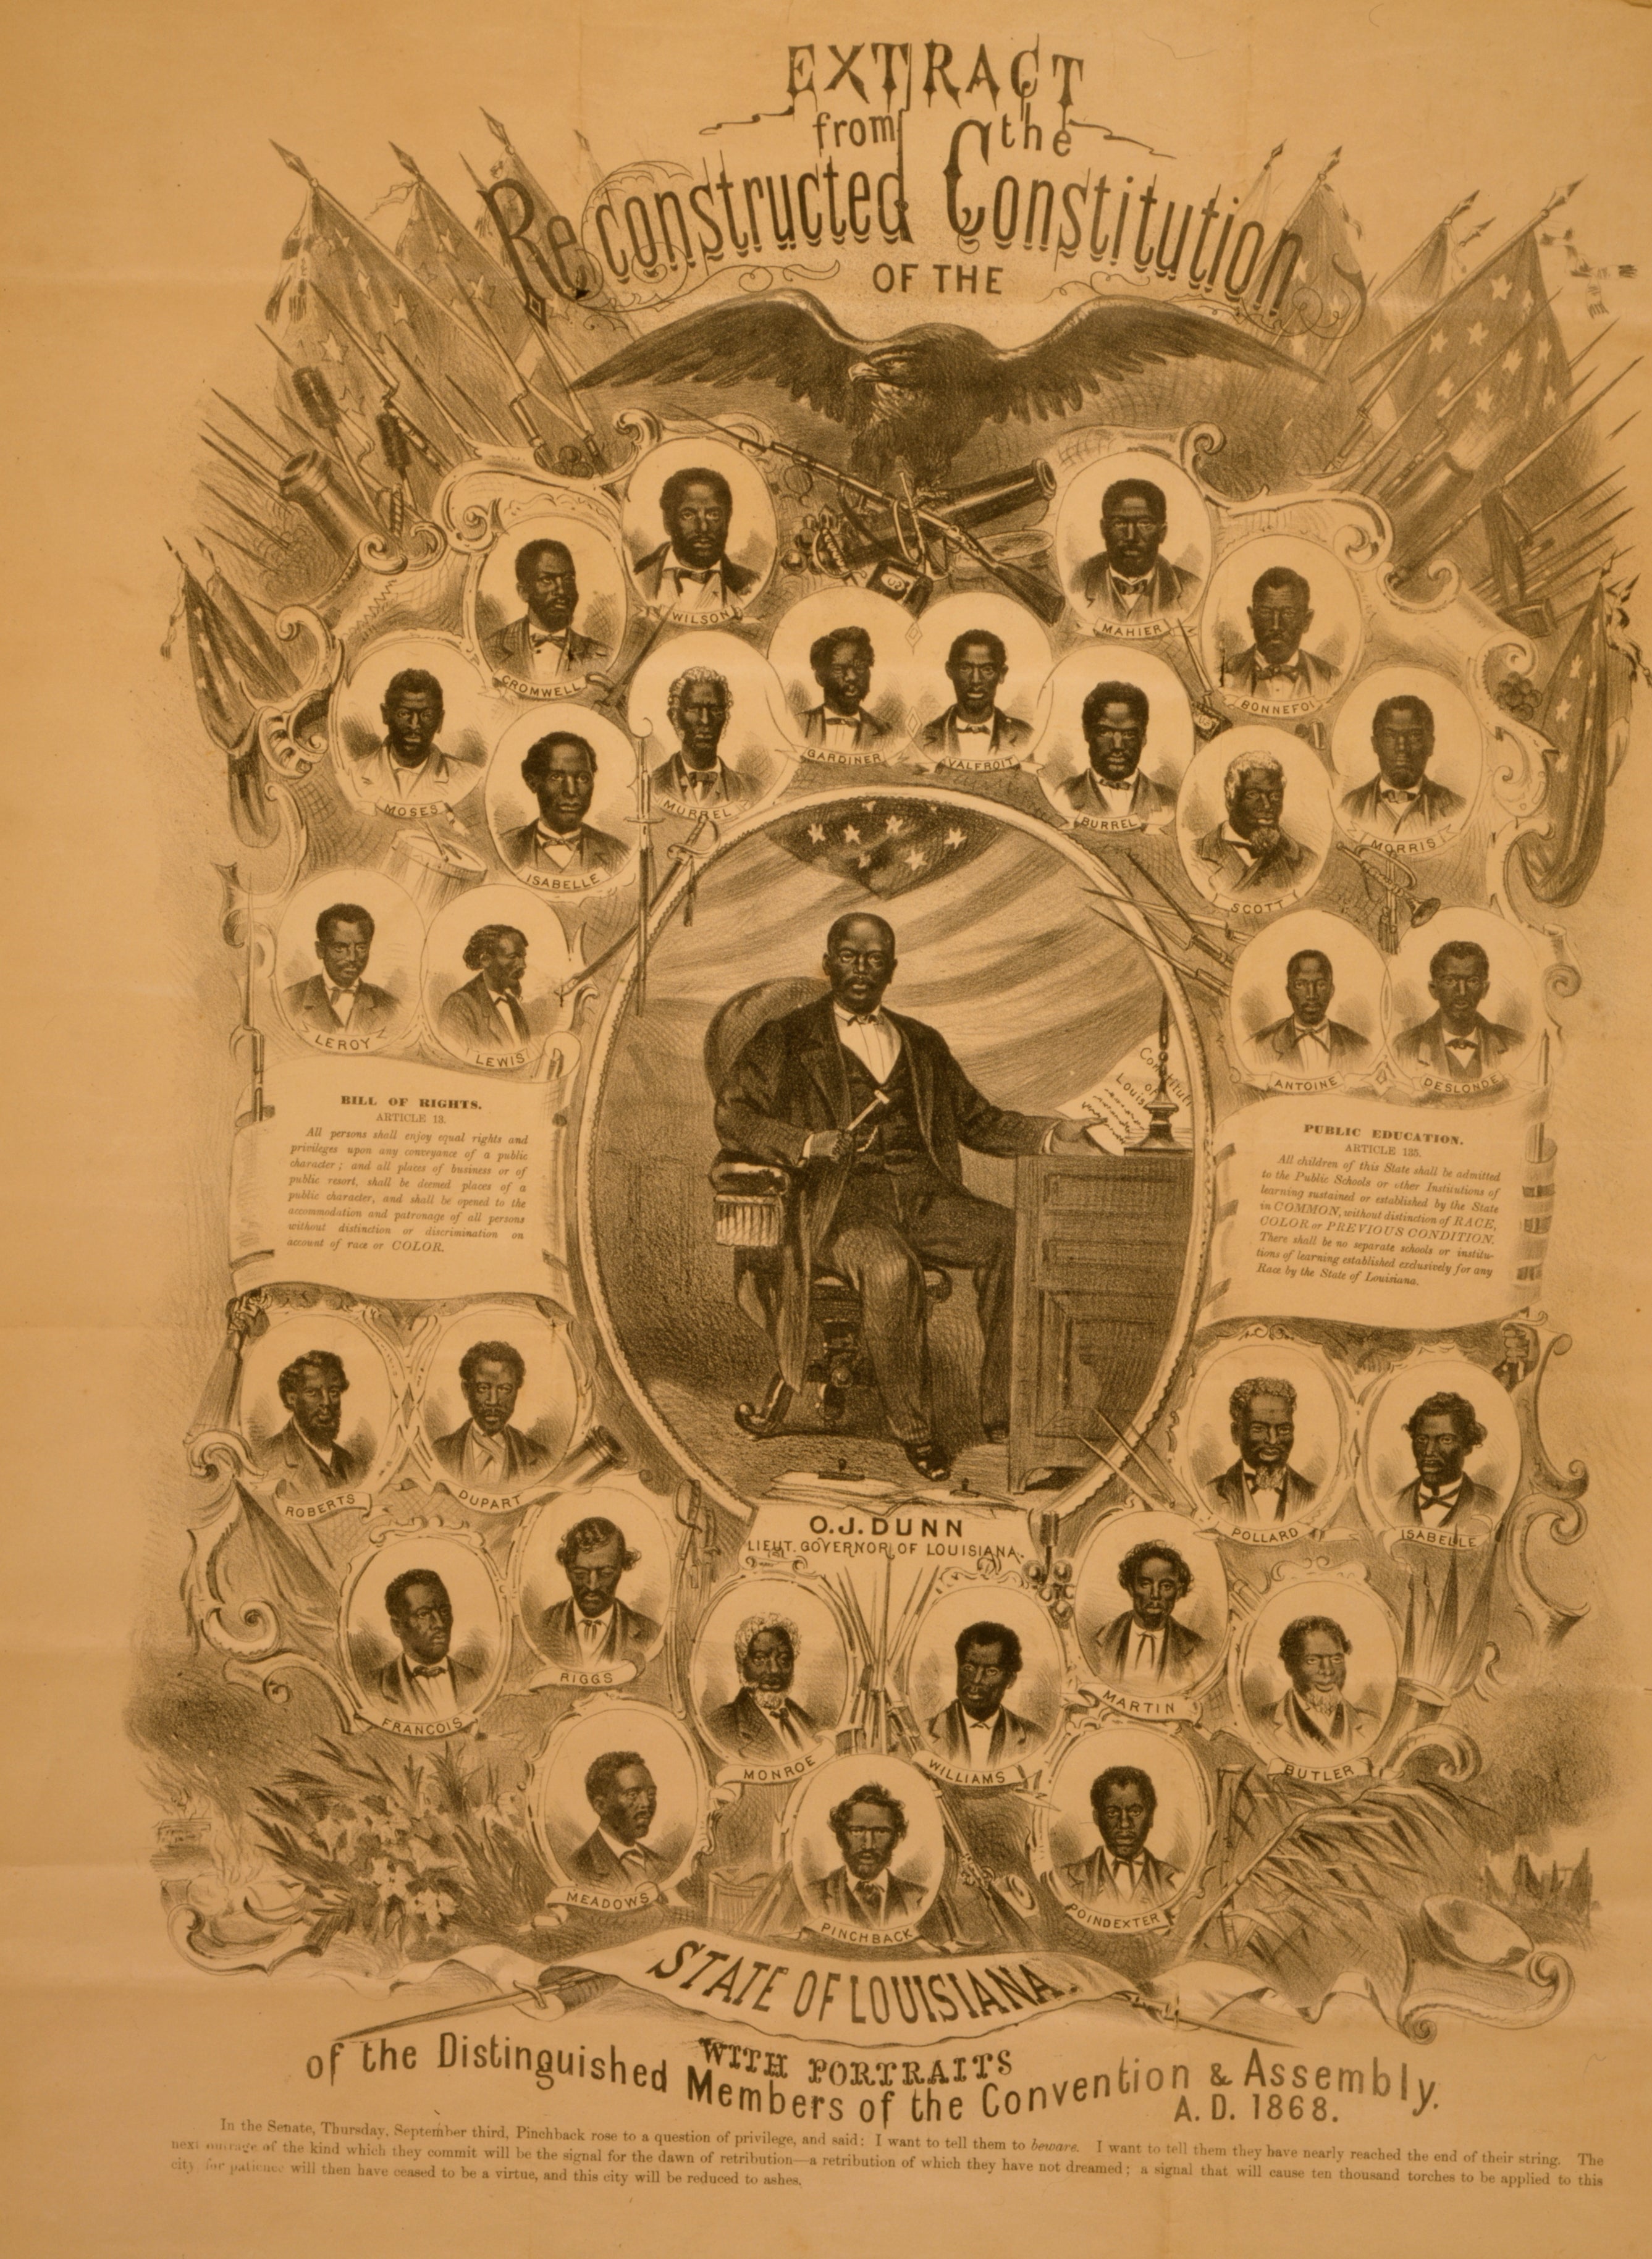 EXTRACT
from the
Reconstructed Constitution
OF THE
WILSON
MAHIER
CROMWELL
BONNEFOI
GARDINER
VALFROIT
MOSES
MURREL
BURREL
MORRIS
ISABELLE
SCOTT
LEROY
LEWIS
ANTOINE
DESLONDE
Constitut
of
Louis
BILL OF RIGHTS.
ARTICLE 13.
All persons shall enjoy equal rights and
privileges upon any conveyance of a public
character; and all places of business or of
public resort, shall be deemed places of a
public character, and shall be opened to the
accommodation and patronage of all persons
without distinction or discrimination on
account of race or COLOR.
PUBLIC EDUCATION.
ARTICLE 135.
All children of this State shall be admitted
to the Public Schools or other Institutions of
learning sustained or established by the State
in COMMON, without distinction of RACE,
COLOR or PREVIOUS CONDITION.
There shall be no separate schools or institu-
tions of learning established exclusively for any
Race by the State of Louisiana.
ROBERTS
DUPART
O.J. DUNN
LIEUT. GOVERNOR OF LOUISIANA.
POLLARD
ISABELLE
FRANCOIS
RIGGS
MONROE
WILLIAMS
MARTIN
BUTLER
MEADOWS
PINCHBACK
POINDEXTER
STATE OF LOUISIANA.
WITH PORTRAITS
of the Distinguished Members of the Convention & Assembly.
A. D. 1868.
In the Senate, Thursday, September third, Pinchback rose to a question of privilege, and said: I want to tell them to beware. I want to tell them they have nearly reached the end of their string. The
next outrage of the kind which they commit will be the signal for the dawn of retribution—a retribution of which they have not dreamed; a signal that will cause ten thousand torches to be applied to this
city, for patience will then have ceased to be a virtue, and this city will be reduced to ashes.